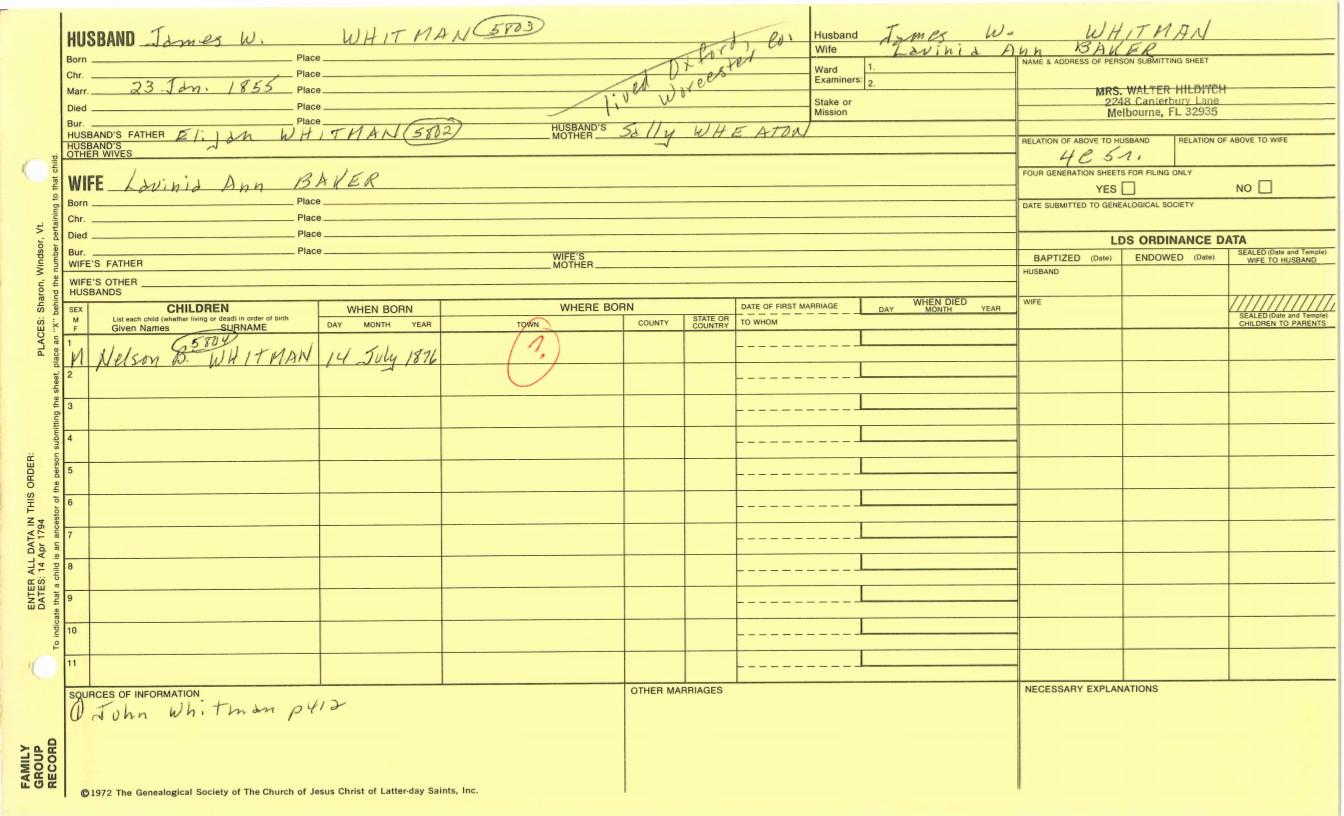 HUSBAND James W. WHITMAN 5803
Born Place
Chr. Place
Marr. 23 Jan. 1855 Place
Died Place
Bur. Place
lived Oxford,
Worcester Co.
HUSBAND'S FATHER Elijah WHITMAN 5802 HUSBAND'S MOTHER Sally WHEATON
HUSBAND'S OTHER WIVES
WIFE Lavinia Ann BAKER
Born Place
Chr. Place
Died Place
Bur. Place
WIFE'S FATHER WIFE'S MOTHER
WIFE'S OTHER HUSBANDS
Husband James W. WHITMAN
Wife Lavinia Ann BAKER
Ward Examiners: 1.
2.
Stake or Mission
NAME & ADDRESS OF PERSON SUBMITTING SHEET
MRS. WALTER HILDITCH
2248 Canterbury Lane
Melbourne, FL 32935
RELATION OF ABOVE TO HUSBAND RELATION OF ABOVE TO WIFE
4c 5r.
FOUR GENERATION SHEETS FOR FILING ONLY
YES NO
DATE SUBMITTED TO GENEALOGICAL SOCIETY
LDS ORDINANCE DATA
BAPTIZED (Date) ENDOWED (Date) SEALED (Date and Temple) WIFE TO HUSBAND
HUSBAND
WIFE
SEALED (Date and Temple) CHILDREN TO PARENTS
SEX M F
CHILDREN
List each child (whether living or dead) in order of birth
Given Names SURNAME
WHEN BORN
DAY MONTH YEAR
WHERE BORN
TOWN COUNTY STATE OR COUNTRY
DATE OF FIRST MARRIAGE
TO WHOM
WHEN DIED
DAY MONTH YEAR
5804
1 M Nelson B. WHITMAN 14 July 1876 ?
2
3
4
5
6
7
8
9
10
11
SOURCES OF INFORMATION
① John Whitman p412
OTHER MARRIAGES
NECESSARY EXPLANATIONS
©1972 The Genealogical Society of The Church of Jesus Christ of Latter-day Saints, Inc.
FAMILY GROUP RECORD
ENTER ALL DATA IN THIS ORDER:
DATES: 14 Apr 1794 PLACES: Sharon, Windsor, Vt.
To indicate that a child is an ancestor of the person submitting the sheet, place an "X" behind the number pertaining to that child.